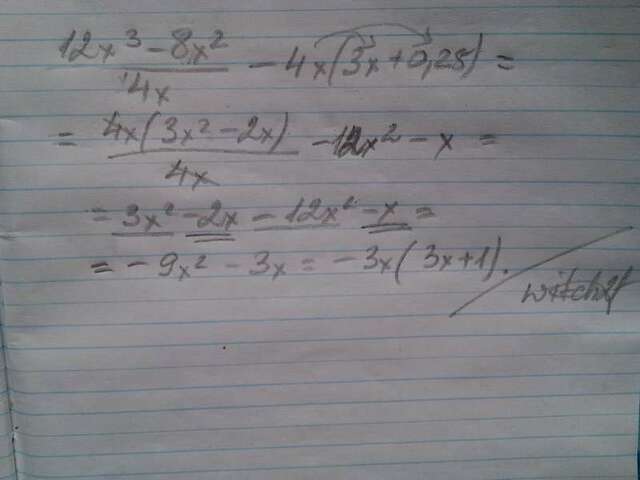 12x³ - 8x² / 4x - 4x(3x + 0,25) =
= 4x(3x² - 2x) / 4x - 12x² - x =
= 3x² - 2x - 12x² - x =
= - 9x² - 3x = - 3x(3x + 1).